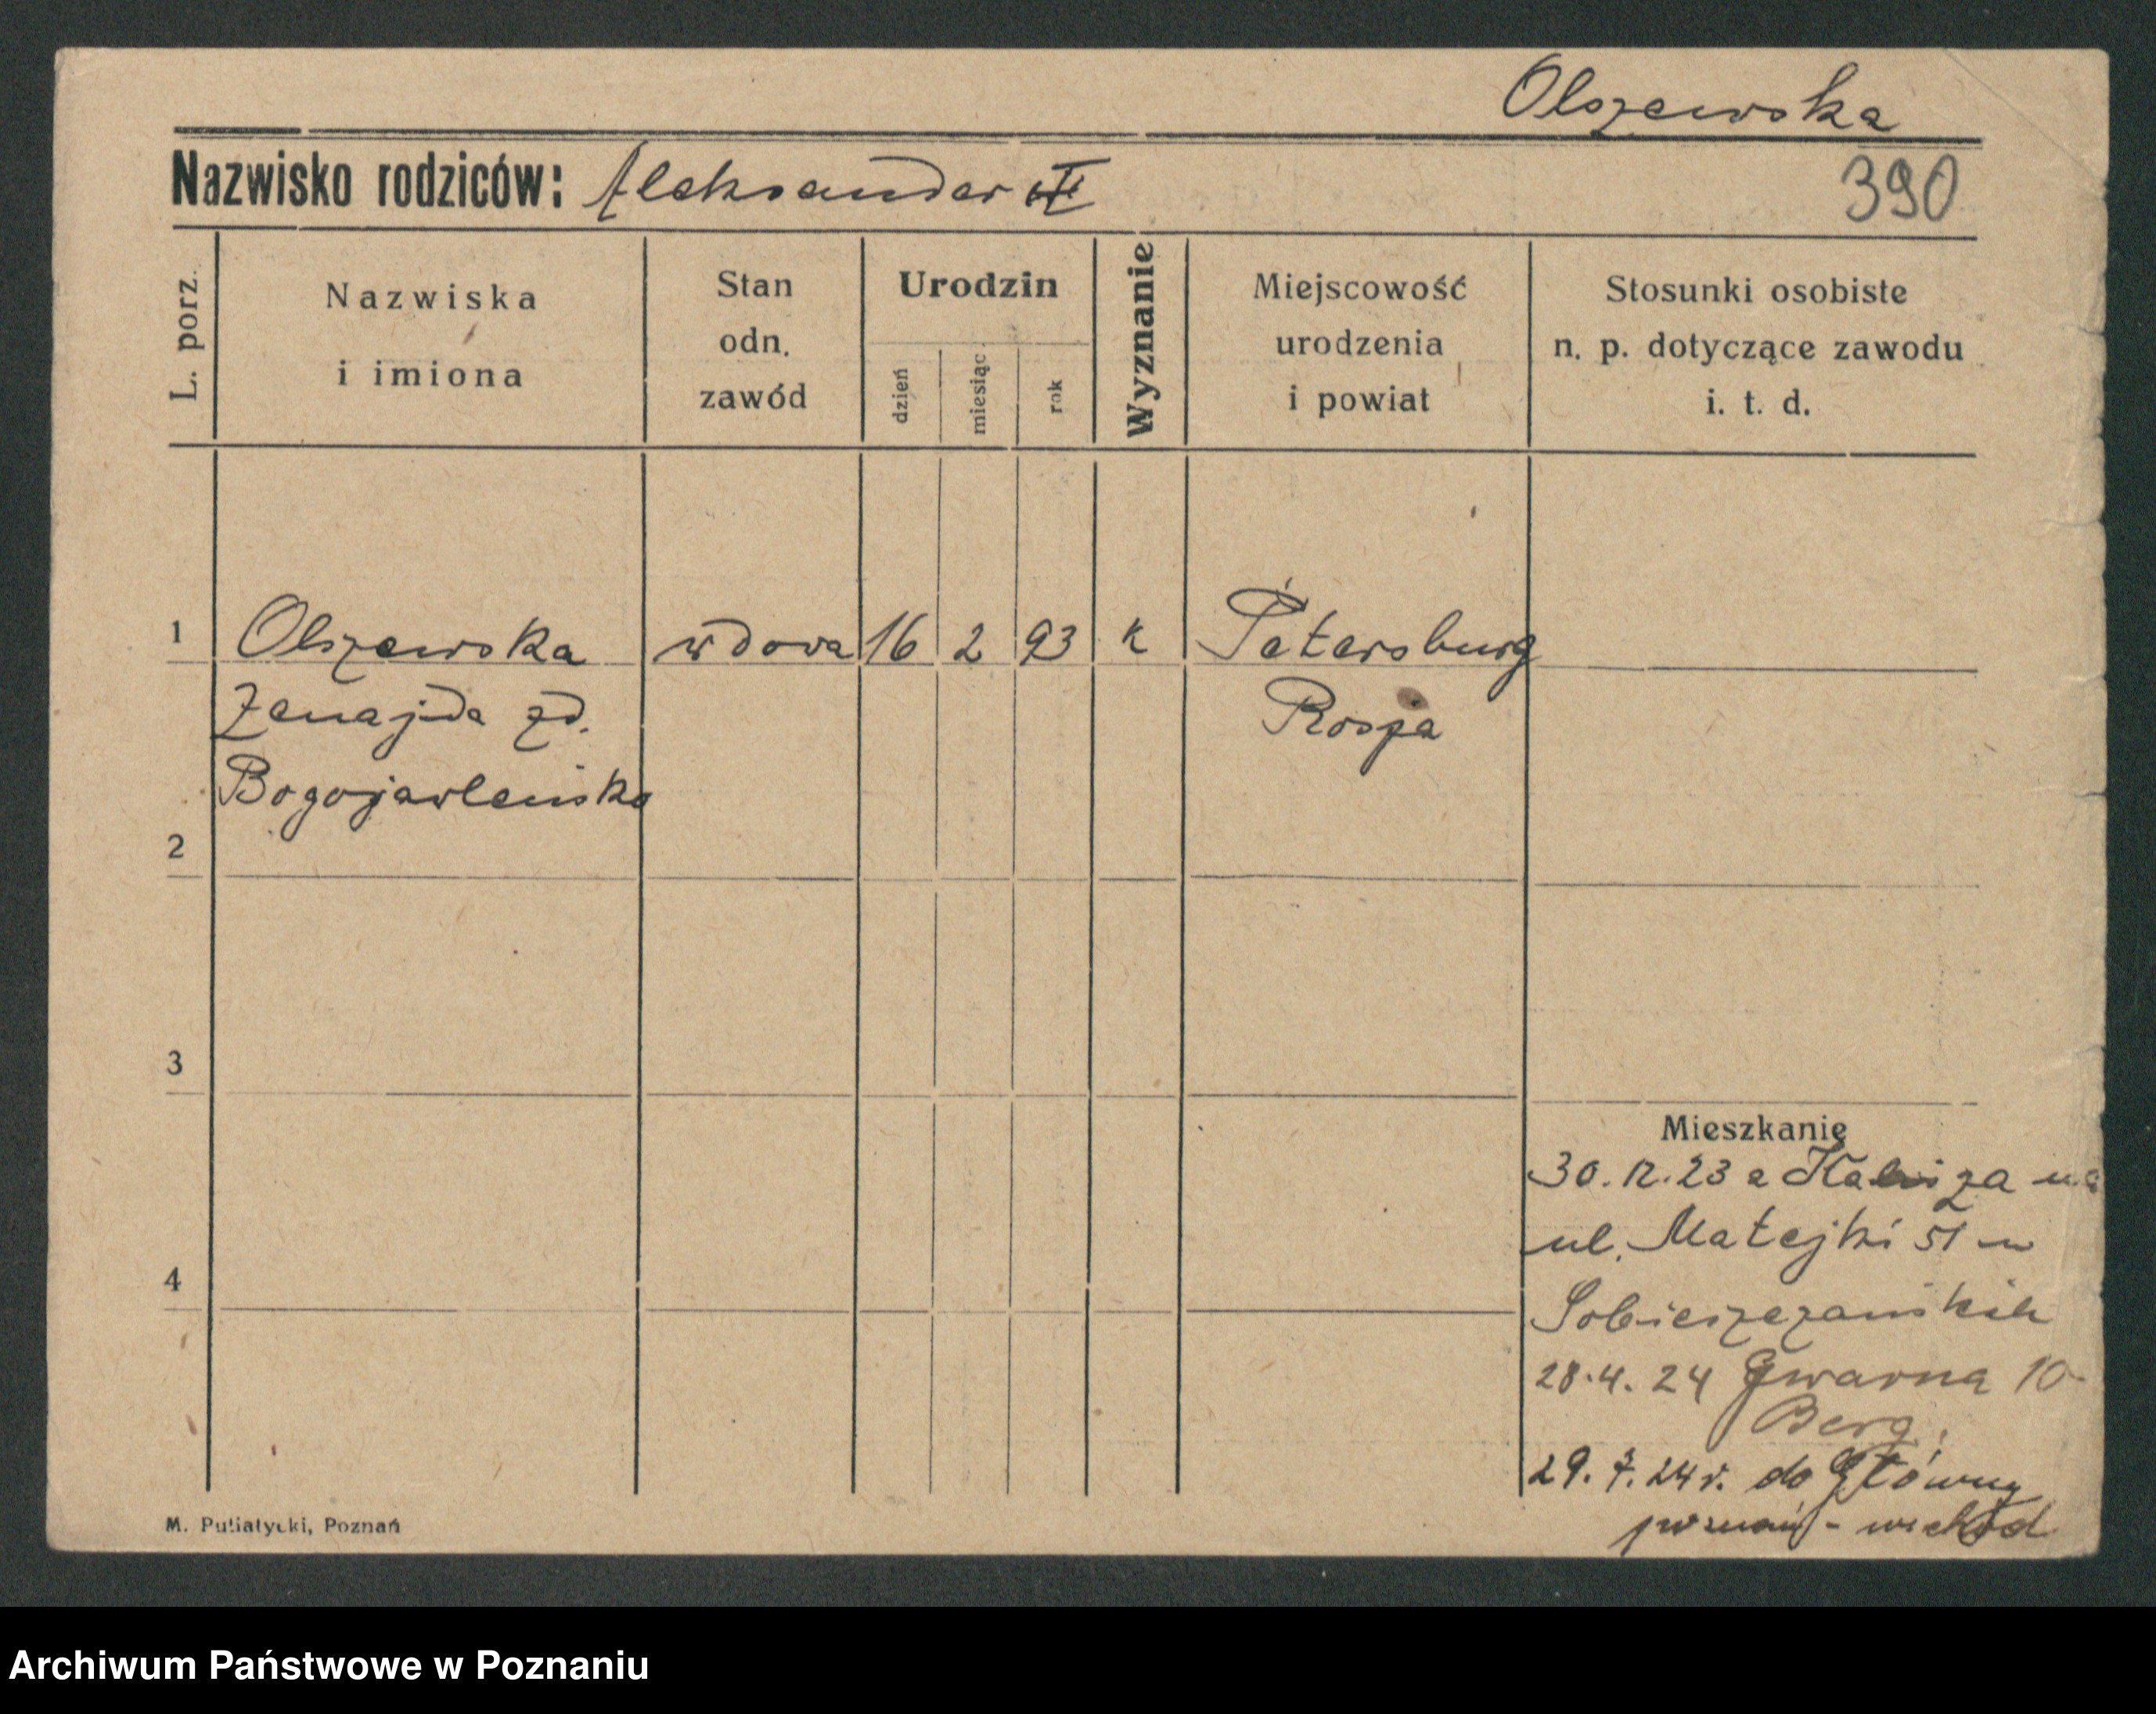 Olszewska
Nazwisko rodziców: Aleksander
390
L. porz.
Nazwiska
i imiona
Stan
odn.
zawód
Urodzin
dzień
miesiąc
rok
Wyznanie
Miejscowość
urodzenia
i powiat
Stosunki osobiste
n. p. dotyczące zawodu
i. t. d.
1 Olszewska wdowa 16 2 93 k Petersburg
Zenajda zd. Rosja
Bogojawleńska
2
3
4
Mieszkanie
30.12.23 z Kalisza na
ul. Matejki 51 u
Sobieszczańskich
28.4.24 Gwarna 10
Berg.
29.7.24 r. do Główny
poznań - wschód
M. Putiatycki, Poznań
Archiwum Państwowe w Poznaniu